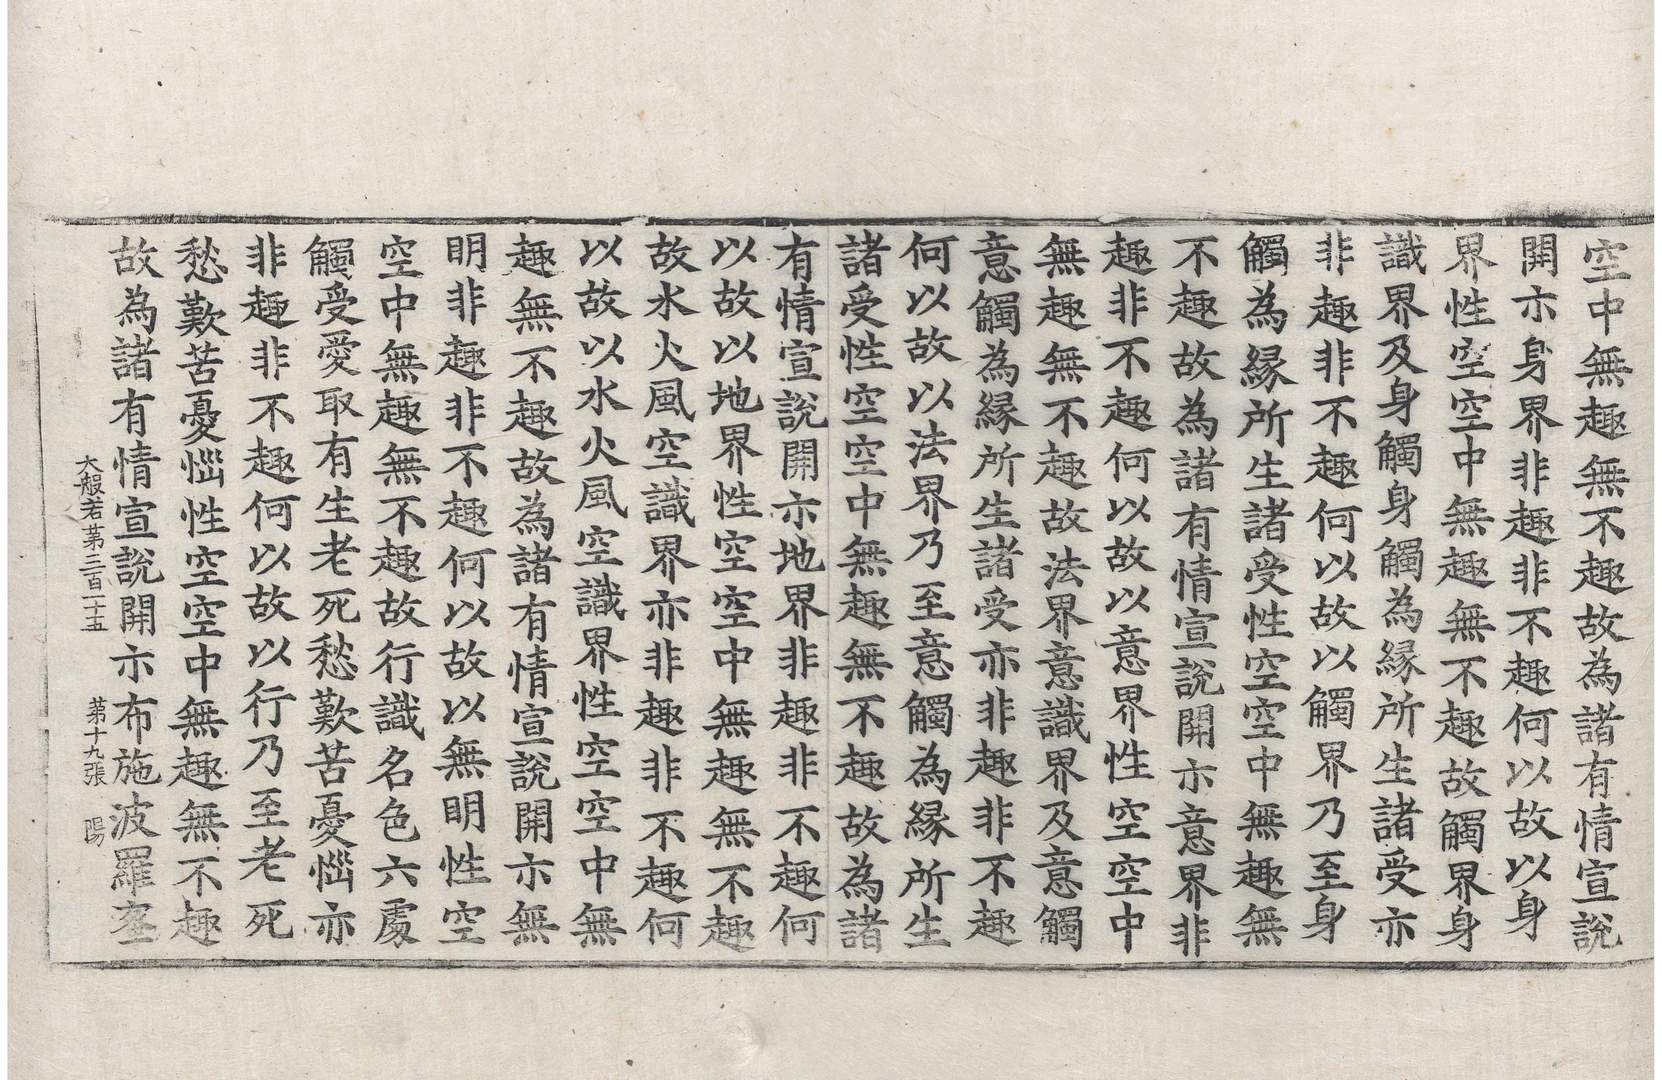 空中無趣無不趣故為諸有情宣說
開示身界非趣非不趣何以故以身
界性空空中無趣無不趣故觸界身
識界及身觸身觸為緣所生諸受亦
非趣非不趣何以故以觸界乃至身
觸為緣所生諸受性空空中無趣無
不趣故為諸有情宣說開示意界非
趣非不趣何以故以意界性空空中
無趣無不趣故法界意識界及意觸
意觸為緣所生諸受亦非趣非不趣
何以故以法界乃至意觸為緣所生
諸受性空空中無趣無不趣故為諸
有情宣說開示地界非趣非不趣何
以故以地界性空空中無趣無不趣
故水火風空識界亦非趣非不趣何
以故以水火風空識界性空空中無
趣無不趣故為諸有情宣說開示無
眀非趣非不趣何以故以無眀性空
空中無趣無不趣故行識名色六處
觸受愛取有生老死愁歎苦憂惱亦
非趣非不趣何以故以行乃至老死
愁歎苦憂惱性空空中無趣無不趣
故為諸有情宣說開示布施波羅蜜
大般若第三百一十五 第十九張 陽